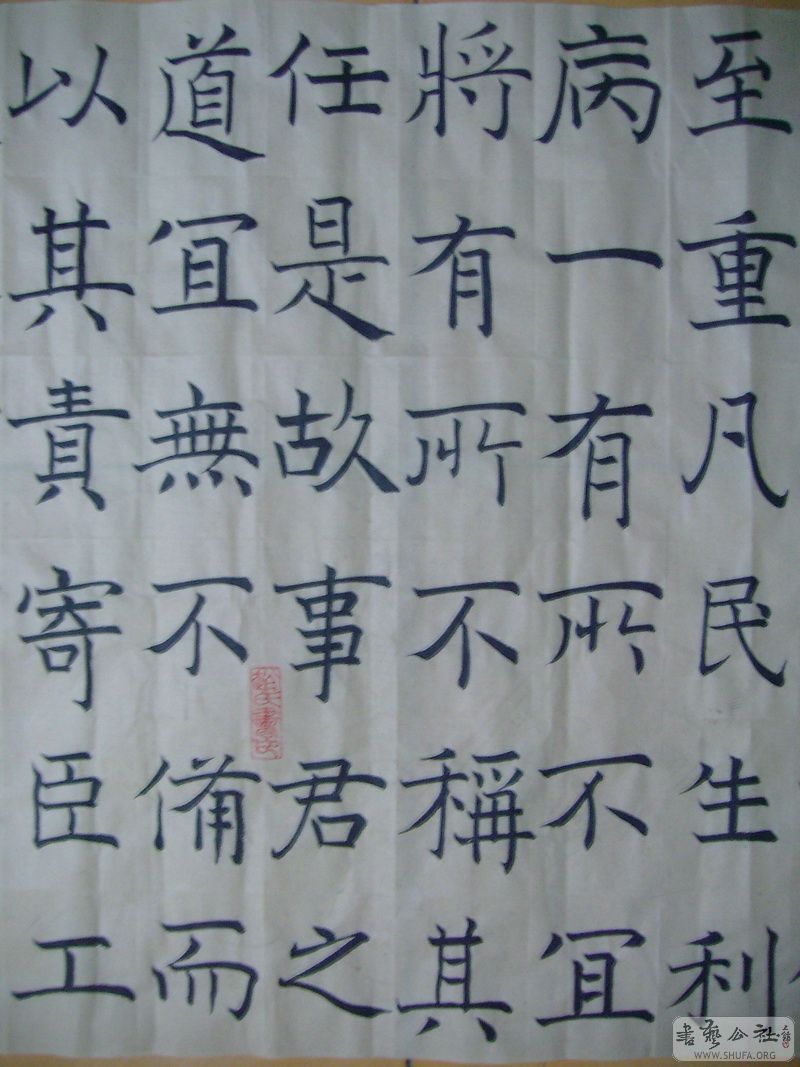 至重凡民生利
病一有所不宜
將有所不稱其
任是故事君之
道宜無不備而
以其責寄臣工
書藝公社
WWW.SHUFA.ORG